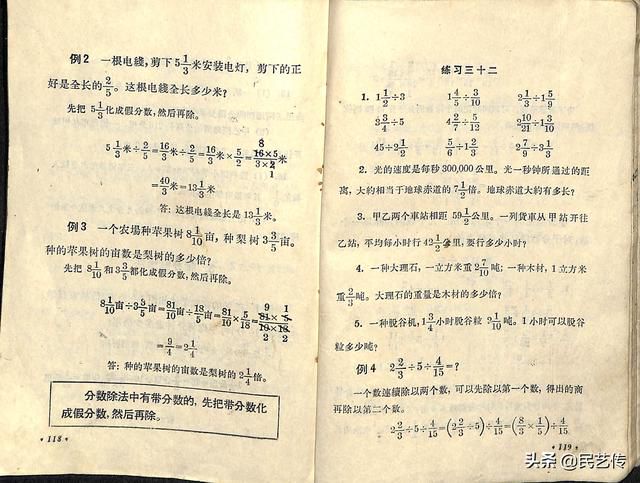 例2 一根电綫,剪下5 1/3米安装电灯,剪下的正
好是全长的2/5。这根电綫全长多少米?
先把 5 1/3化成假分数,然后再除。
5 1/3米÷2/5=16/3米÷2/5=16/3米×5/2=(16×5)/(3×2)米
8
1
=40/3米=13 1/3米
答: 这根电綫全长是13 1/3米。
例3 一个农場种苹果树8 1/10亩,种梨树3 3/5亩。
种的苹果树的亩数是梨树的多少倍?
先把 8 1/10和3 3/5都化成假分数,然后再除。
8 1/10亩÷3 3/5亩=81/10亩÷18/5亩=81/10×5/18=
9 1
2 2
=9/4=2 1/4
答: 种的苹果树的亩数是梨树的2 1/4倍。
分数除法中有带分数的,先把带分数化
成假分数,然后再除。
·118·
练习三十二
1. 1 1/2÷3 1 4/5÷3/10 2 1/3÷1 5/9
3 3/4÷5 4 2/7÷5/12 2 10/21÷1 3/10
45÷1 2/3 5/6÷1 2/3 2 7/9÷3 1/3
2. 光的速度是每秒300,000公里。光一秒钟所通过的距
离,大約相当于地球赤道的7 1/2倍。地球赤道大約有多长?
3. 甲乙两个車站相距 59 1/2公里。一列貨車从甲站开往
乙站,平均每小时行42 1/2公里,要行多少小时?
4. 一种大理石,一立方米重2 7/10吨;一种木材,1立方米
重2/3吨。大理石的重量是木材的多少倍?
5. 一种脱谷机,1 3/4小时脱谷粒 9 1/10吨。1小时可以脱谷
粒多少吨?
例4 2 2/3÷5÷4/15=?
一个数連續除以两个数,可以先除以第一个数,得出的商
再除以第二个数。
2 2/3÷5÷4/15=(2 2/3÷5)÷4/15=(8/3×1/5)÷4/15
·119·
头条 @民艺传